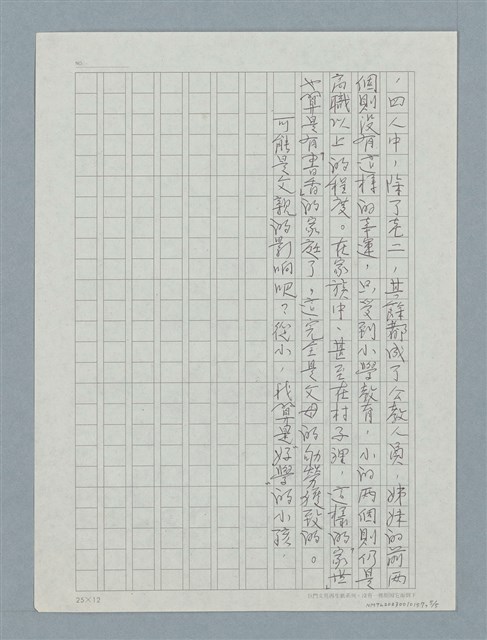 ，四人中，除了老二，其餘都成了公教人員，姊妹的前兩
個則沒有這樣的幸運，只受到小學教育，小的兩個則仍是
高職以上的程度。在家族中、甚至在村子裡，這樣的「家世」
也算是有「書香」的家庭了，這完全是父母的勤勞獲致的。
可能是父親的影响吧？從小，我算是「好學」的小孩．
25×12